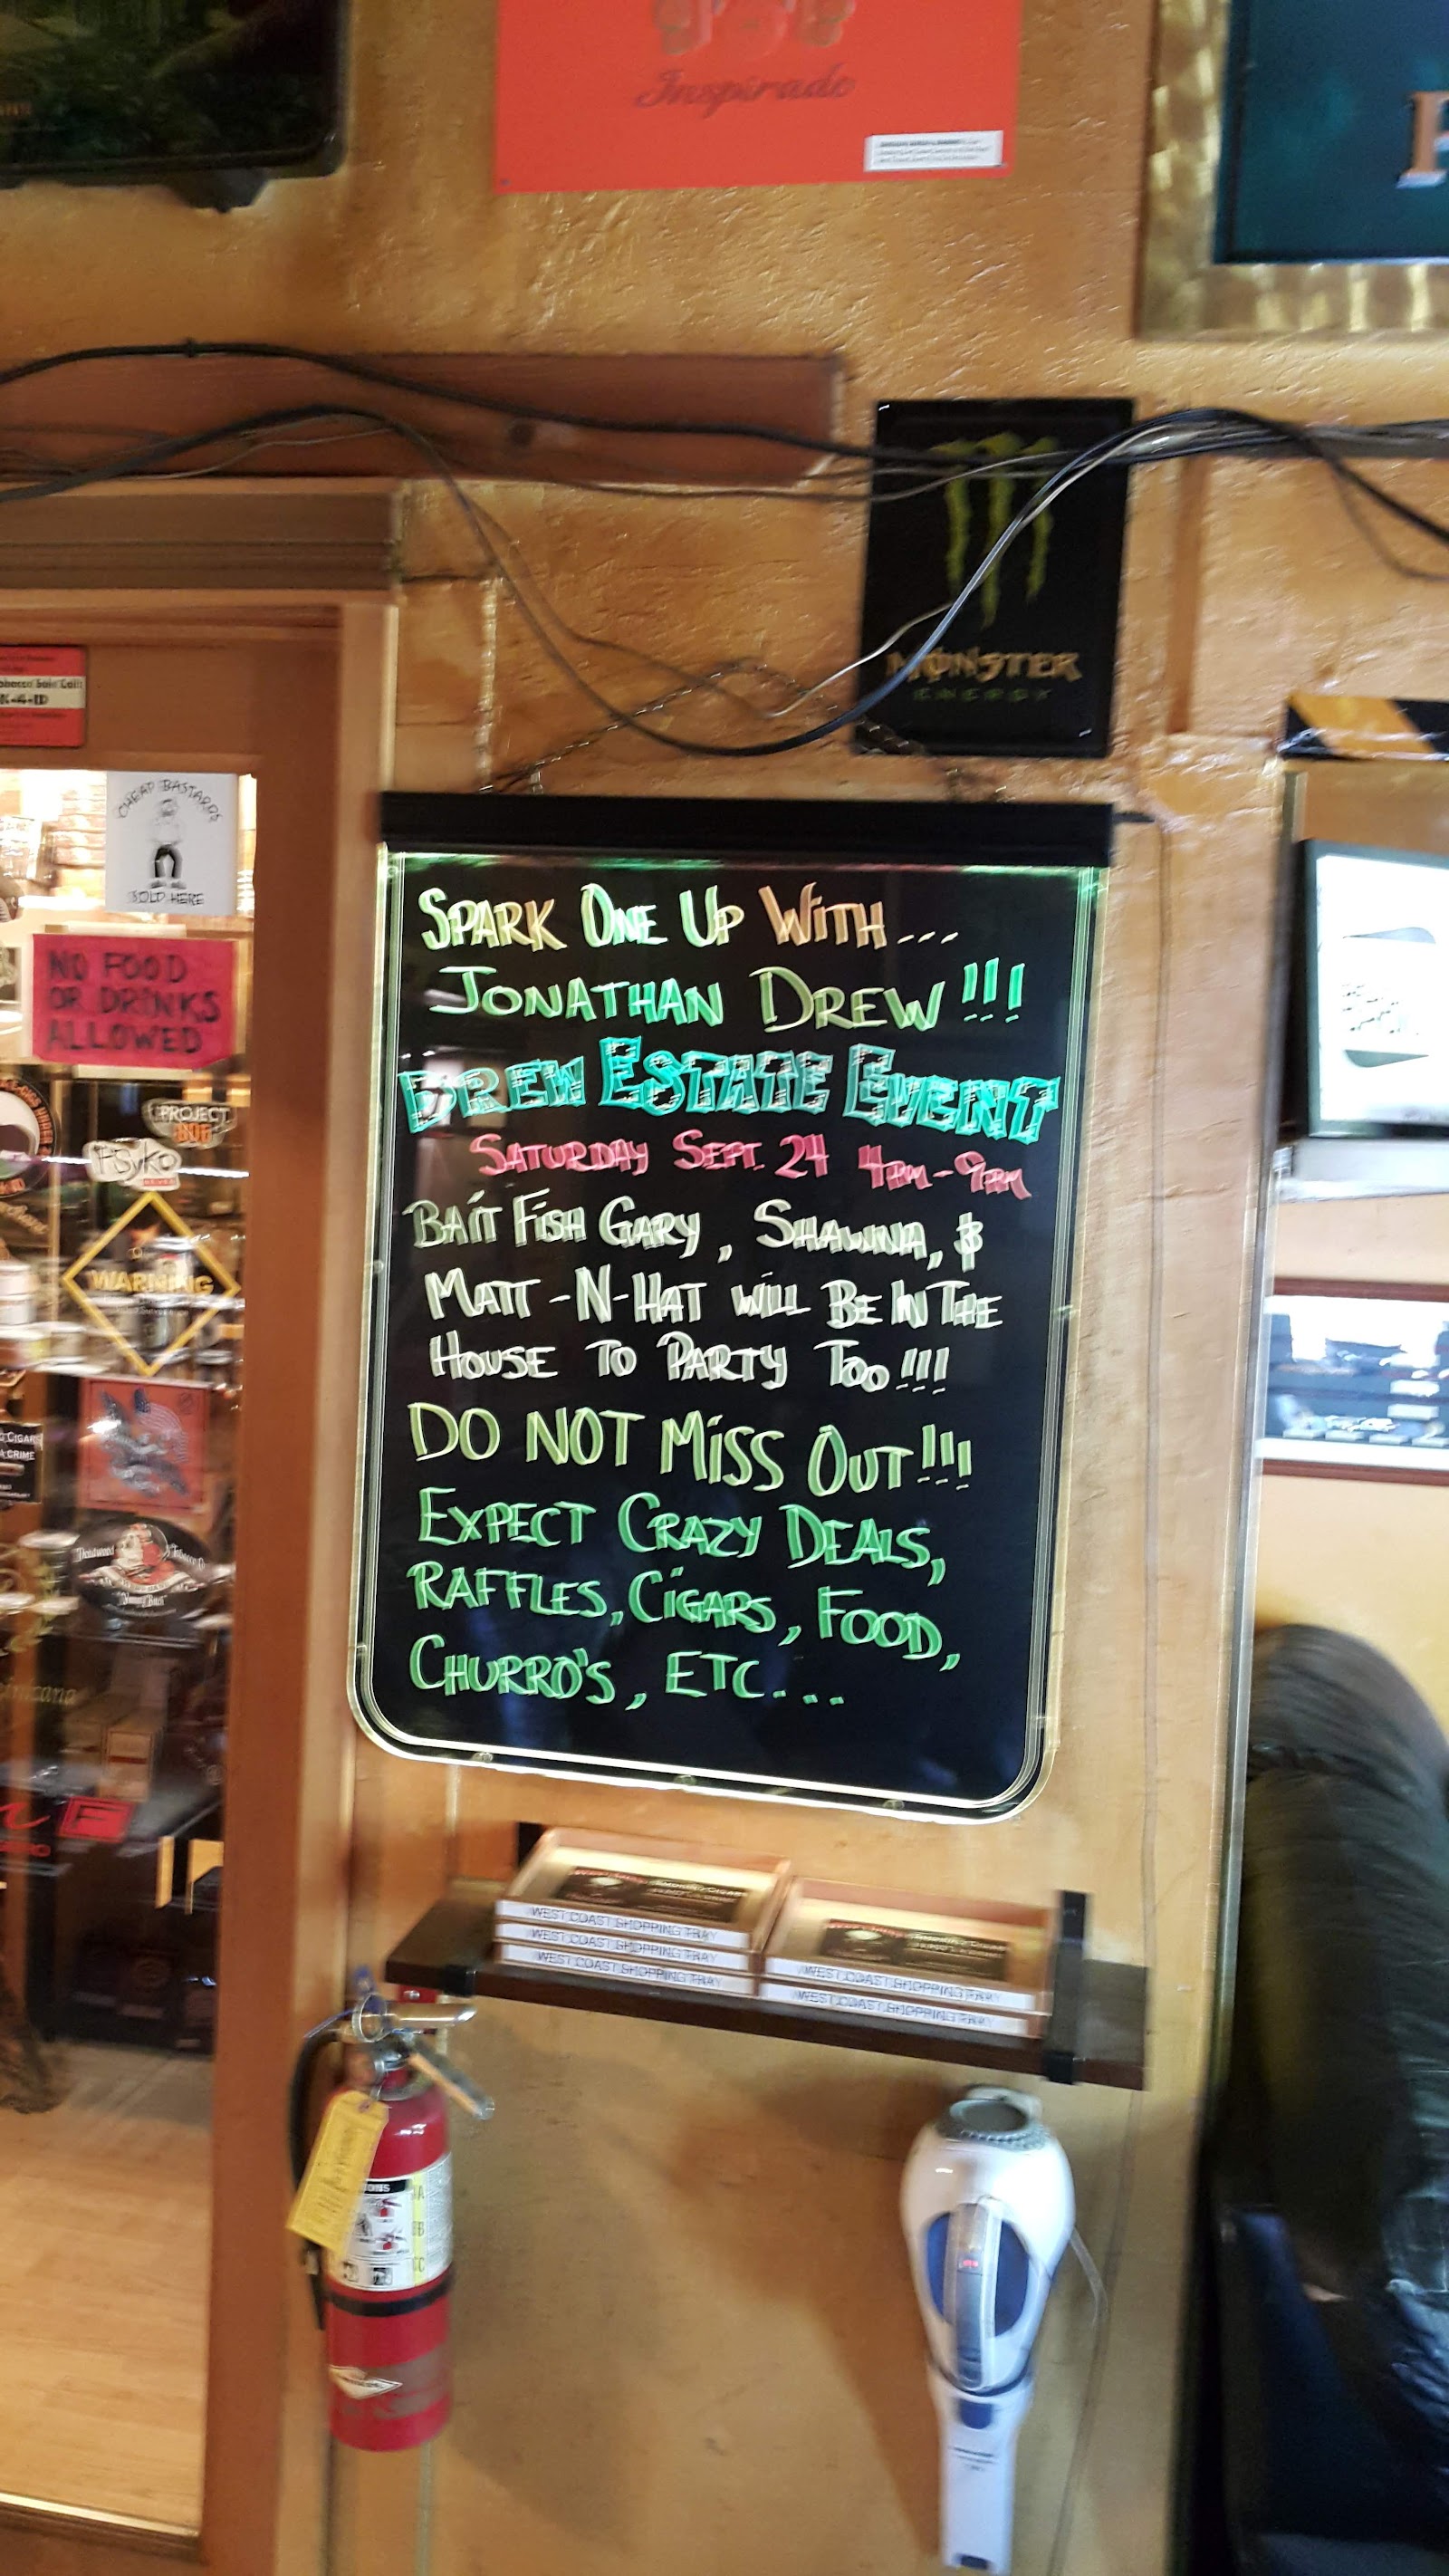 Inspirado
MONSTER
ENERGY
CHEAP BASTARDS
SOLD HERE
NO FOOD
OR DRINKS
ALLOWED
PROJECT
805
PSyKo
WARNING
SPARK ONE UP WITH...
JONATHAN DREW!!!
DREW ESTATE EVENT
SATURDAY SEPT. 24 4PM-9PM
BAIT FISH GARY, SHAWNA, &
MATT-N-HAT WILL BE IN THE
HOUSE TO PARTY TOO!!!
DO NOT MISS OUT!!!
EXPECT CRAZY DEALS,
RAFFLES, CIGARS, FOOD,
CHURRO'S, ETC...
WEST COAST SHOPPING TRAY
WEST COAST SHOPPING TRAY
WEST COAST SHOPPING TRAY
WEST COAST SHOPPING TRAY
WEST COAST SHOPPING TRAY